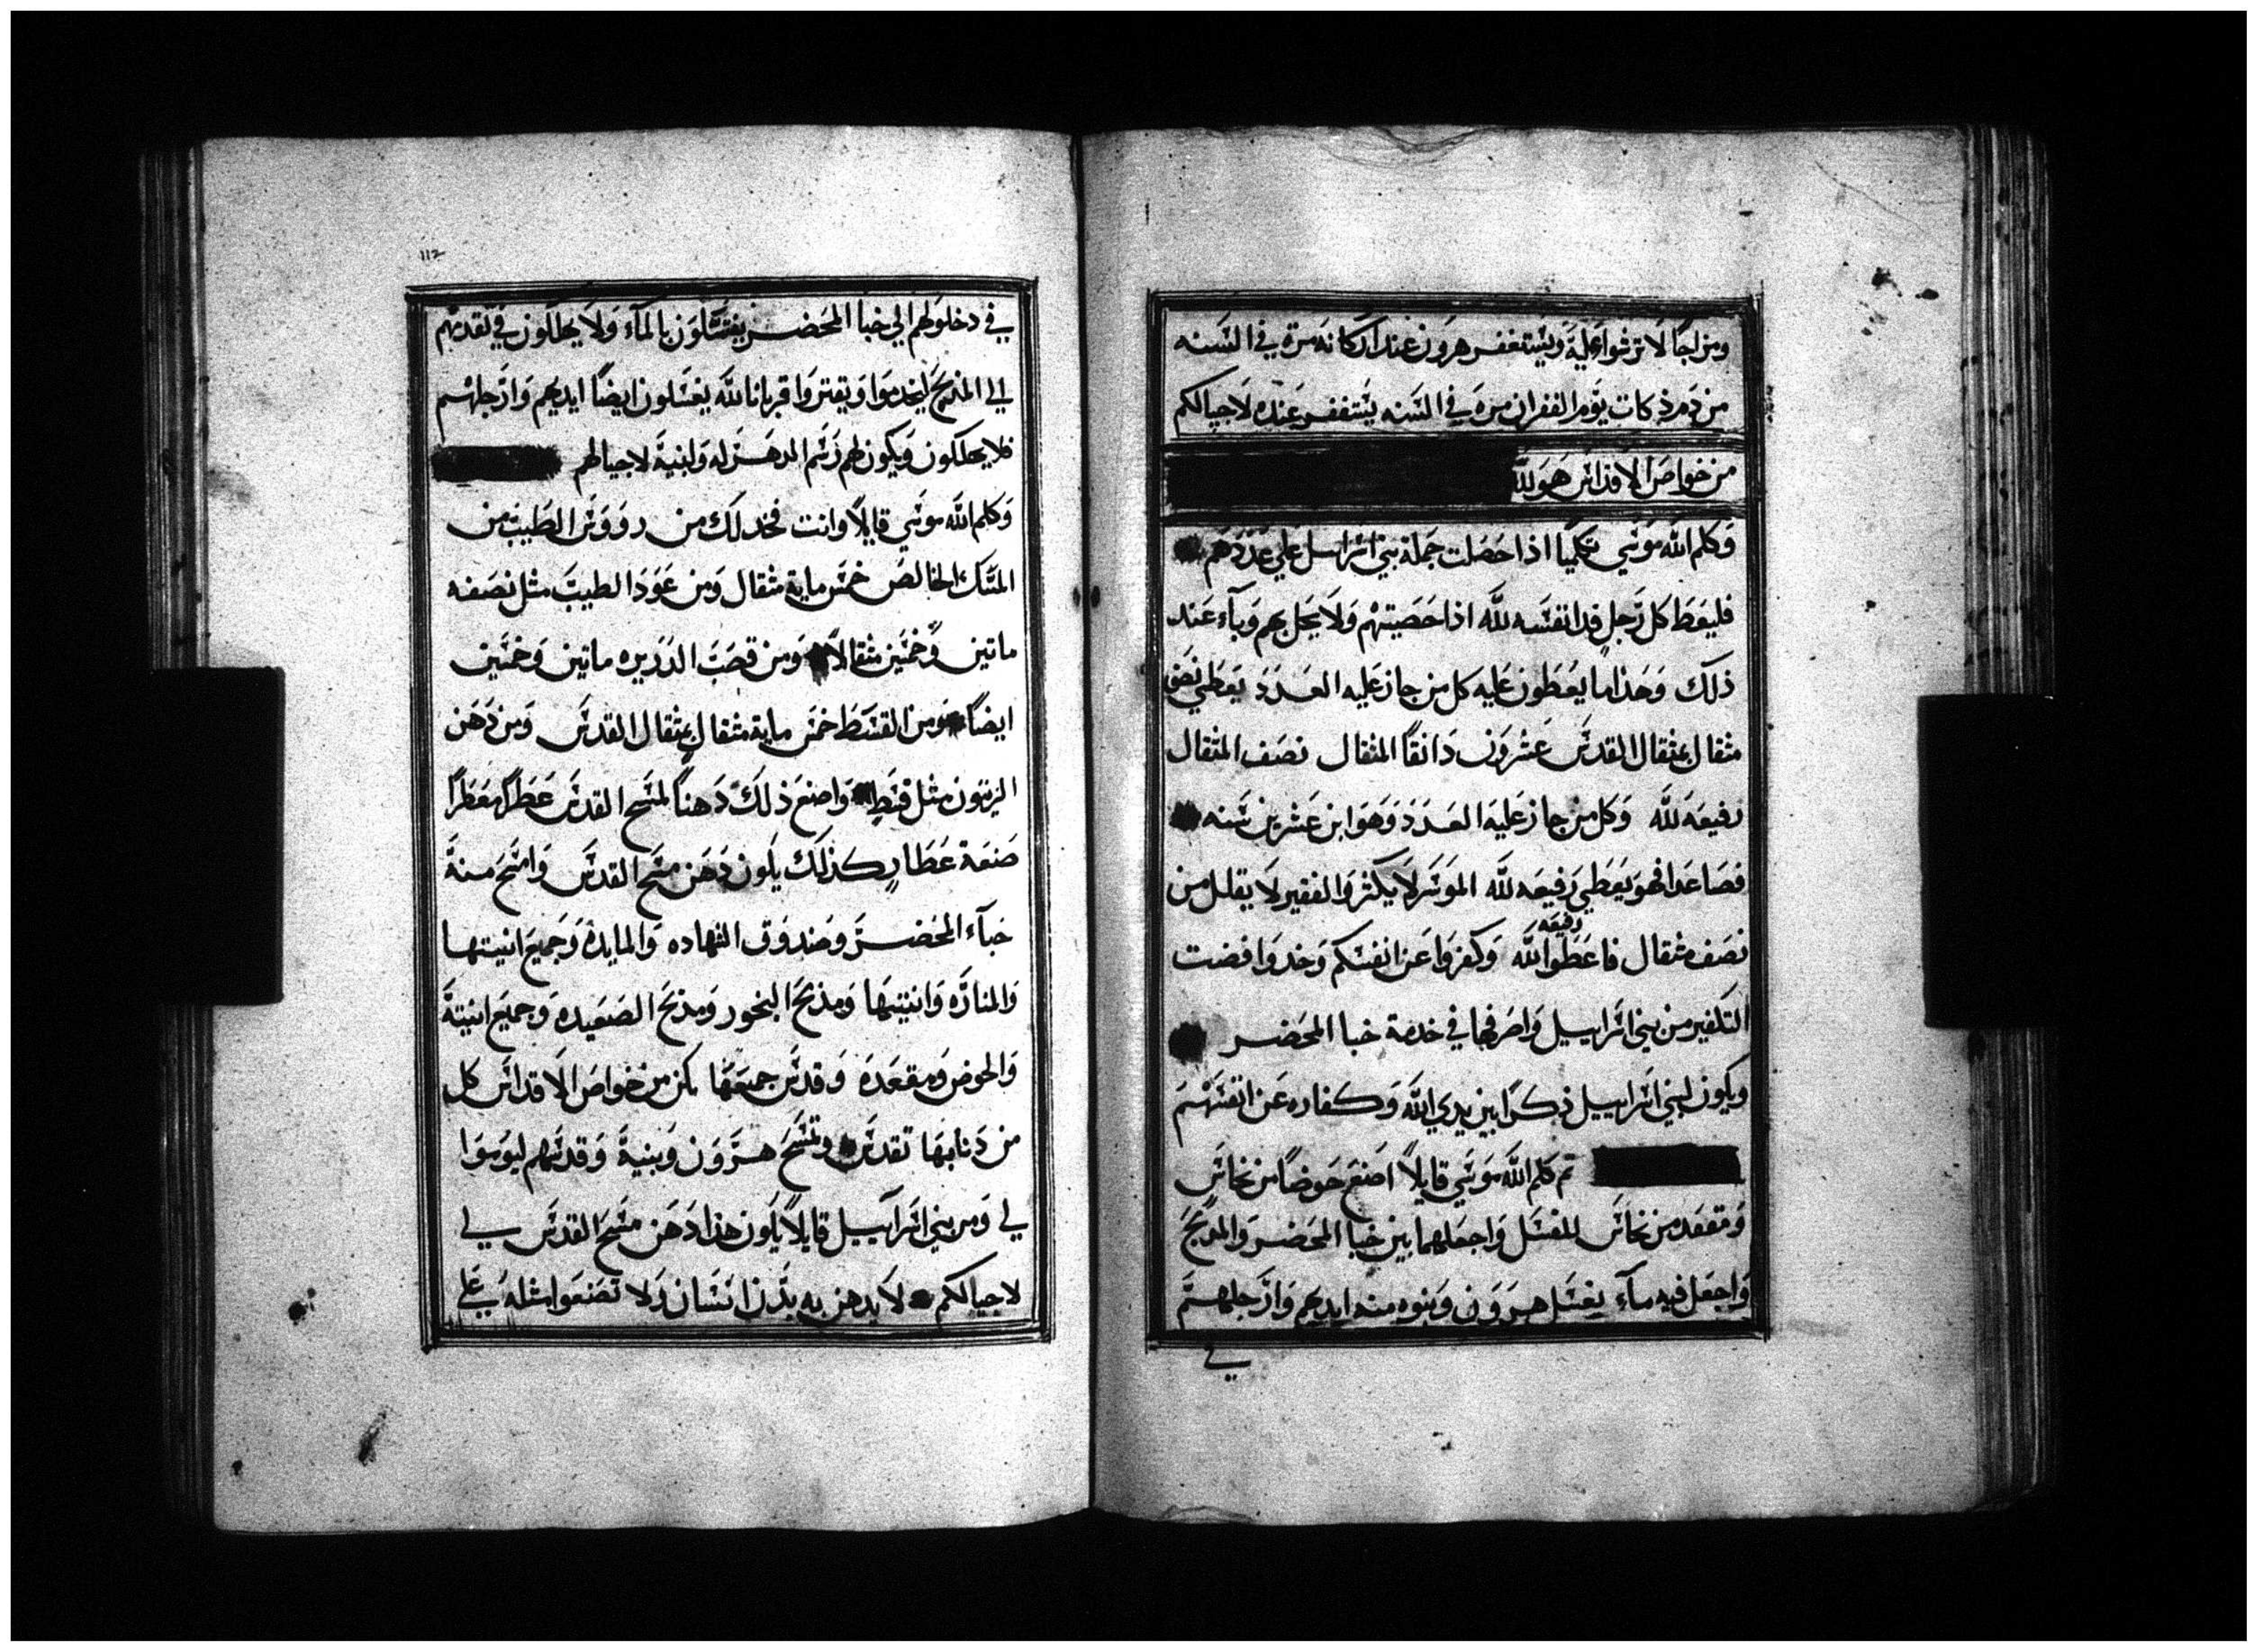 ومزاجا لا ترشوا عليه ويستغفر هرون عند اركانه مرة في السنه
من دم ذكات يوم الغفران مرة في السنه يستغفر عنده لاجيالكم
من خواص الاقداس هو لله
وكلم الله موسي تكليما اذا حصلت جملة بني اسرايل علي عددهم
فليعط كل رجل فدا نفسه لله اذا حصيتهم ولا يحل بهم وباء عند
ذلك وهذا ما يعطون عليه كل من جاز عليه العدد يعطي نصف
مثقال بمثقال القدس عشرون دانقا المثقال نصف المثقال
رفيعه لله وكل من جاز عليه العدد وهو ابن عشرين سنه
فصاعدا فهو يعطي رفيعه لله الموسر لا يكثر والفقير لا يقلل من
نصف مثقال فاعطوا رفيعه لله وكفروا عن انفسكم وخذوا فضت
التكفير من بني اسراييل واصرفها في خدمة خبا المحضر
ويكون لبني اسراييل ذكرا بين يدي الله وكفاره عن انفسهم
ثم كلم الله موسي قايلا اصنع حوضا من نحاس
ومقعد من نحاس للغسل واجعلهما بين خبا المحضر والمذبح
واجعل فيه ماء يغسل هرون وبنوه منه ايديهم وارجلهم
في
١١٢
في دخولهم الي خبا المحضر يغتسلون بالماء ولا يهلكون في تقدمهم
الي المذبح ليخدموا ويقتروا قربانا لله يغسلون ايضا ايديهم وارجلهم
فلا يهلكون ويكون لهم رسم الدهر له ولبنيه لاجيالهم
وكلم الله موسي قايلا وانت فخد لك من رووس الطيب من
المسك الخالص خمس ماية مثقال ومن عود الطيب مثل نصفه
ماتين وخمسين مثقالا ومن قصب الدريره ماتين وخمسين
ايضا ومن القسط خمس ماية مثقال بمثقال القدس ومن دهن
الزيتون مثل قسط واصنع ذلك دهنا لمسح القدس عطرا معطرا
صنعة عطار كذلك يكون دهن مسح القدس وامسح منه
خباء المحضر وصندوق الشهاده والمايدة وجميع انيتها
والمناره وانيتها ومذبح البخور ومذبح الصعيده وجميع انيته
والحوض ومقعده وقدس جميعها تكن من خواص الاقداس كل
من دنا بها تقدس وتمسح هرون وبنيه وقدسهم ليوموا
لي ومر بني اسراييل قايلا يكون هذا دهن مسح القدس لي
لاجيالكم لا يدهن به بدن انسان ولا تصنعوا مثله علي